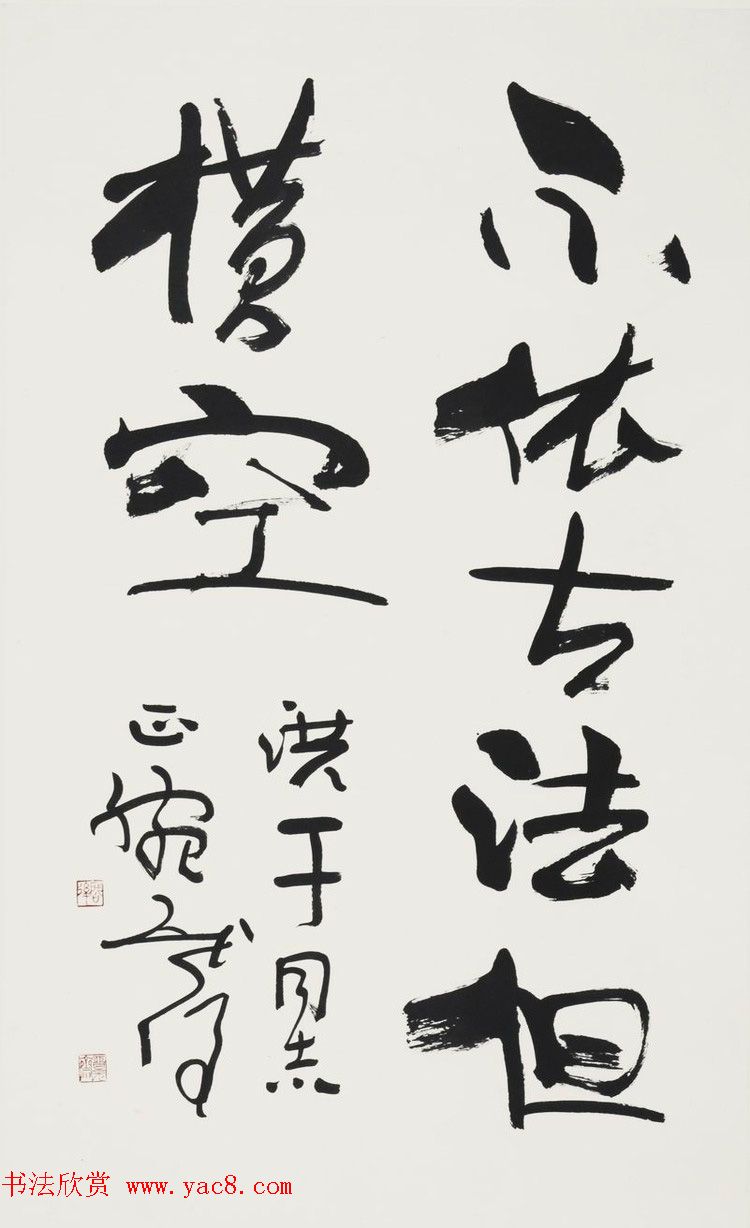 不依古法但
横空
洪于同志
正腕
书法欣赏 www.yac8.com